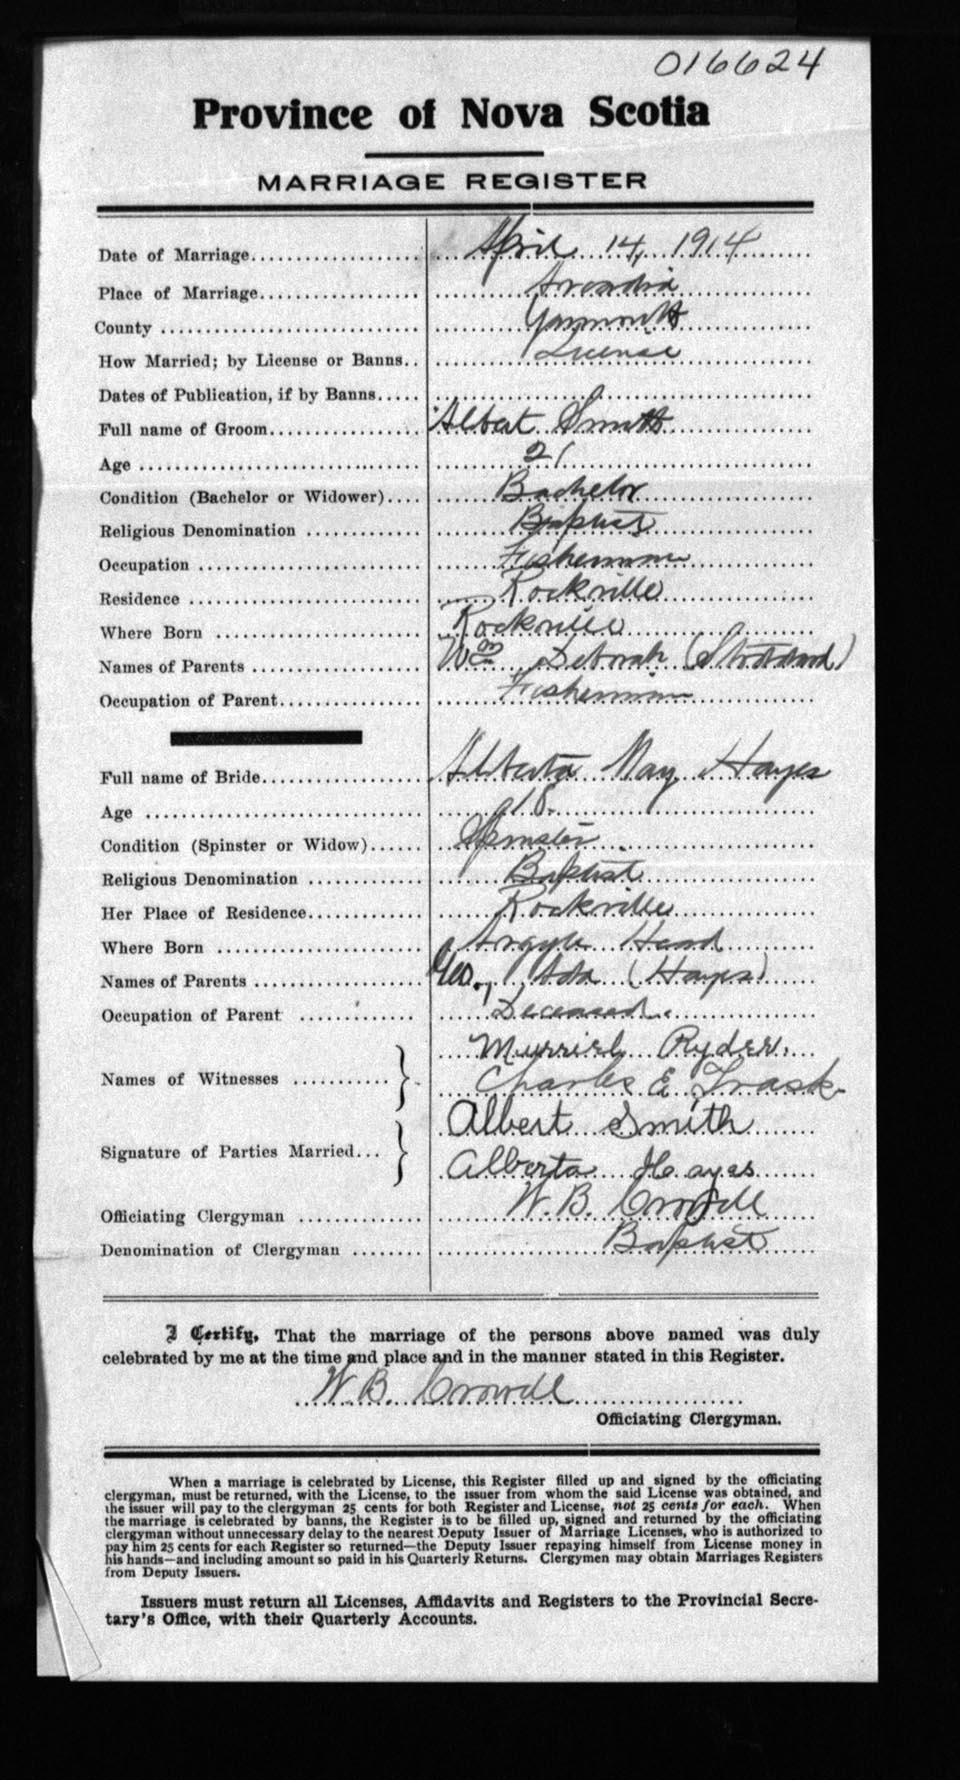 016624
Province of Nova Scotia
MARRIAGE REGISTER
Date of Marriage.................... April 14, 1914
Place of Marriage................... Arcadia
County ............................. Yarmouth
How Married; by License or Banns.. License
Dates of Publication, if by Banns.....
Full name of Groom.................. Albert Smith
Age ................................ 21
Condition (Bachelor or Widower).... Bachelor
Religious Denomination ............. Baptist
Occupation ......................... Fisherman
Residence .......................... Rockville
Where Born ......................... Rockville
Names of Parents ................... Wm Deborah (Stoddard)
Occupation of Parent................ Fisherman
Full name of Bride.................. Alberta May Hayes
Age ................................ 18.
Condition (Spinster or Widow)...... Spinster
Religious Denomination ............. Baptist
Her Place of Residence.............. Rockville
Where Born ......................... Argyle Head
Names of Parents ................... Geo., Ada (Hayes)
Occupation of Parent ............. Deceased.
Names of Witnesses ........... } Murriel Ryder.
Charles E. Trask
Signature of Parties Married... } Albert Smith
Alberta Hayes
Officiating Clergyman .............. W. B. Crowell
Denomination of Clergyman ........ Baptist
I Certify, That the marriage of the persons above named was duly
celebrated by me at the time and place and in the manner stated in this Register.
W. B. Crowell
Officiating Clergyman.
When a marriage is celebrated by License, this Register filled up and signed by the officiating
clergyman, must be returned, with the License, to the issuer from whom the said License was obtained, and
the issuer will pay to the clergyman 25 cents for both Register and License, not 25 cents for each. When
the marriage is celebrated by banns, the Register is to be filled up, signed and returned by the officiating
clergyman without unnecessary delay to the nearest Deputy Issuer of Marriage Licenses, who is authorized to
pay him 25 cents for each Register so returned—the Deputy Issuer repaying himself from License money in
his hands—and including amount so paid in his Quarterly Returns. Clergymen may obtain Marriages Registers
from Deputy Issuers.
Issuers must return all Licenses, Affidavits and Registers to the Provincial Secre-
tary's Office, with their Quarterly Accounts.